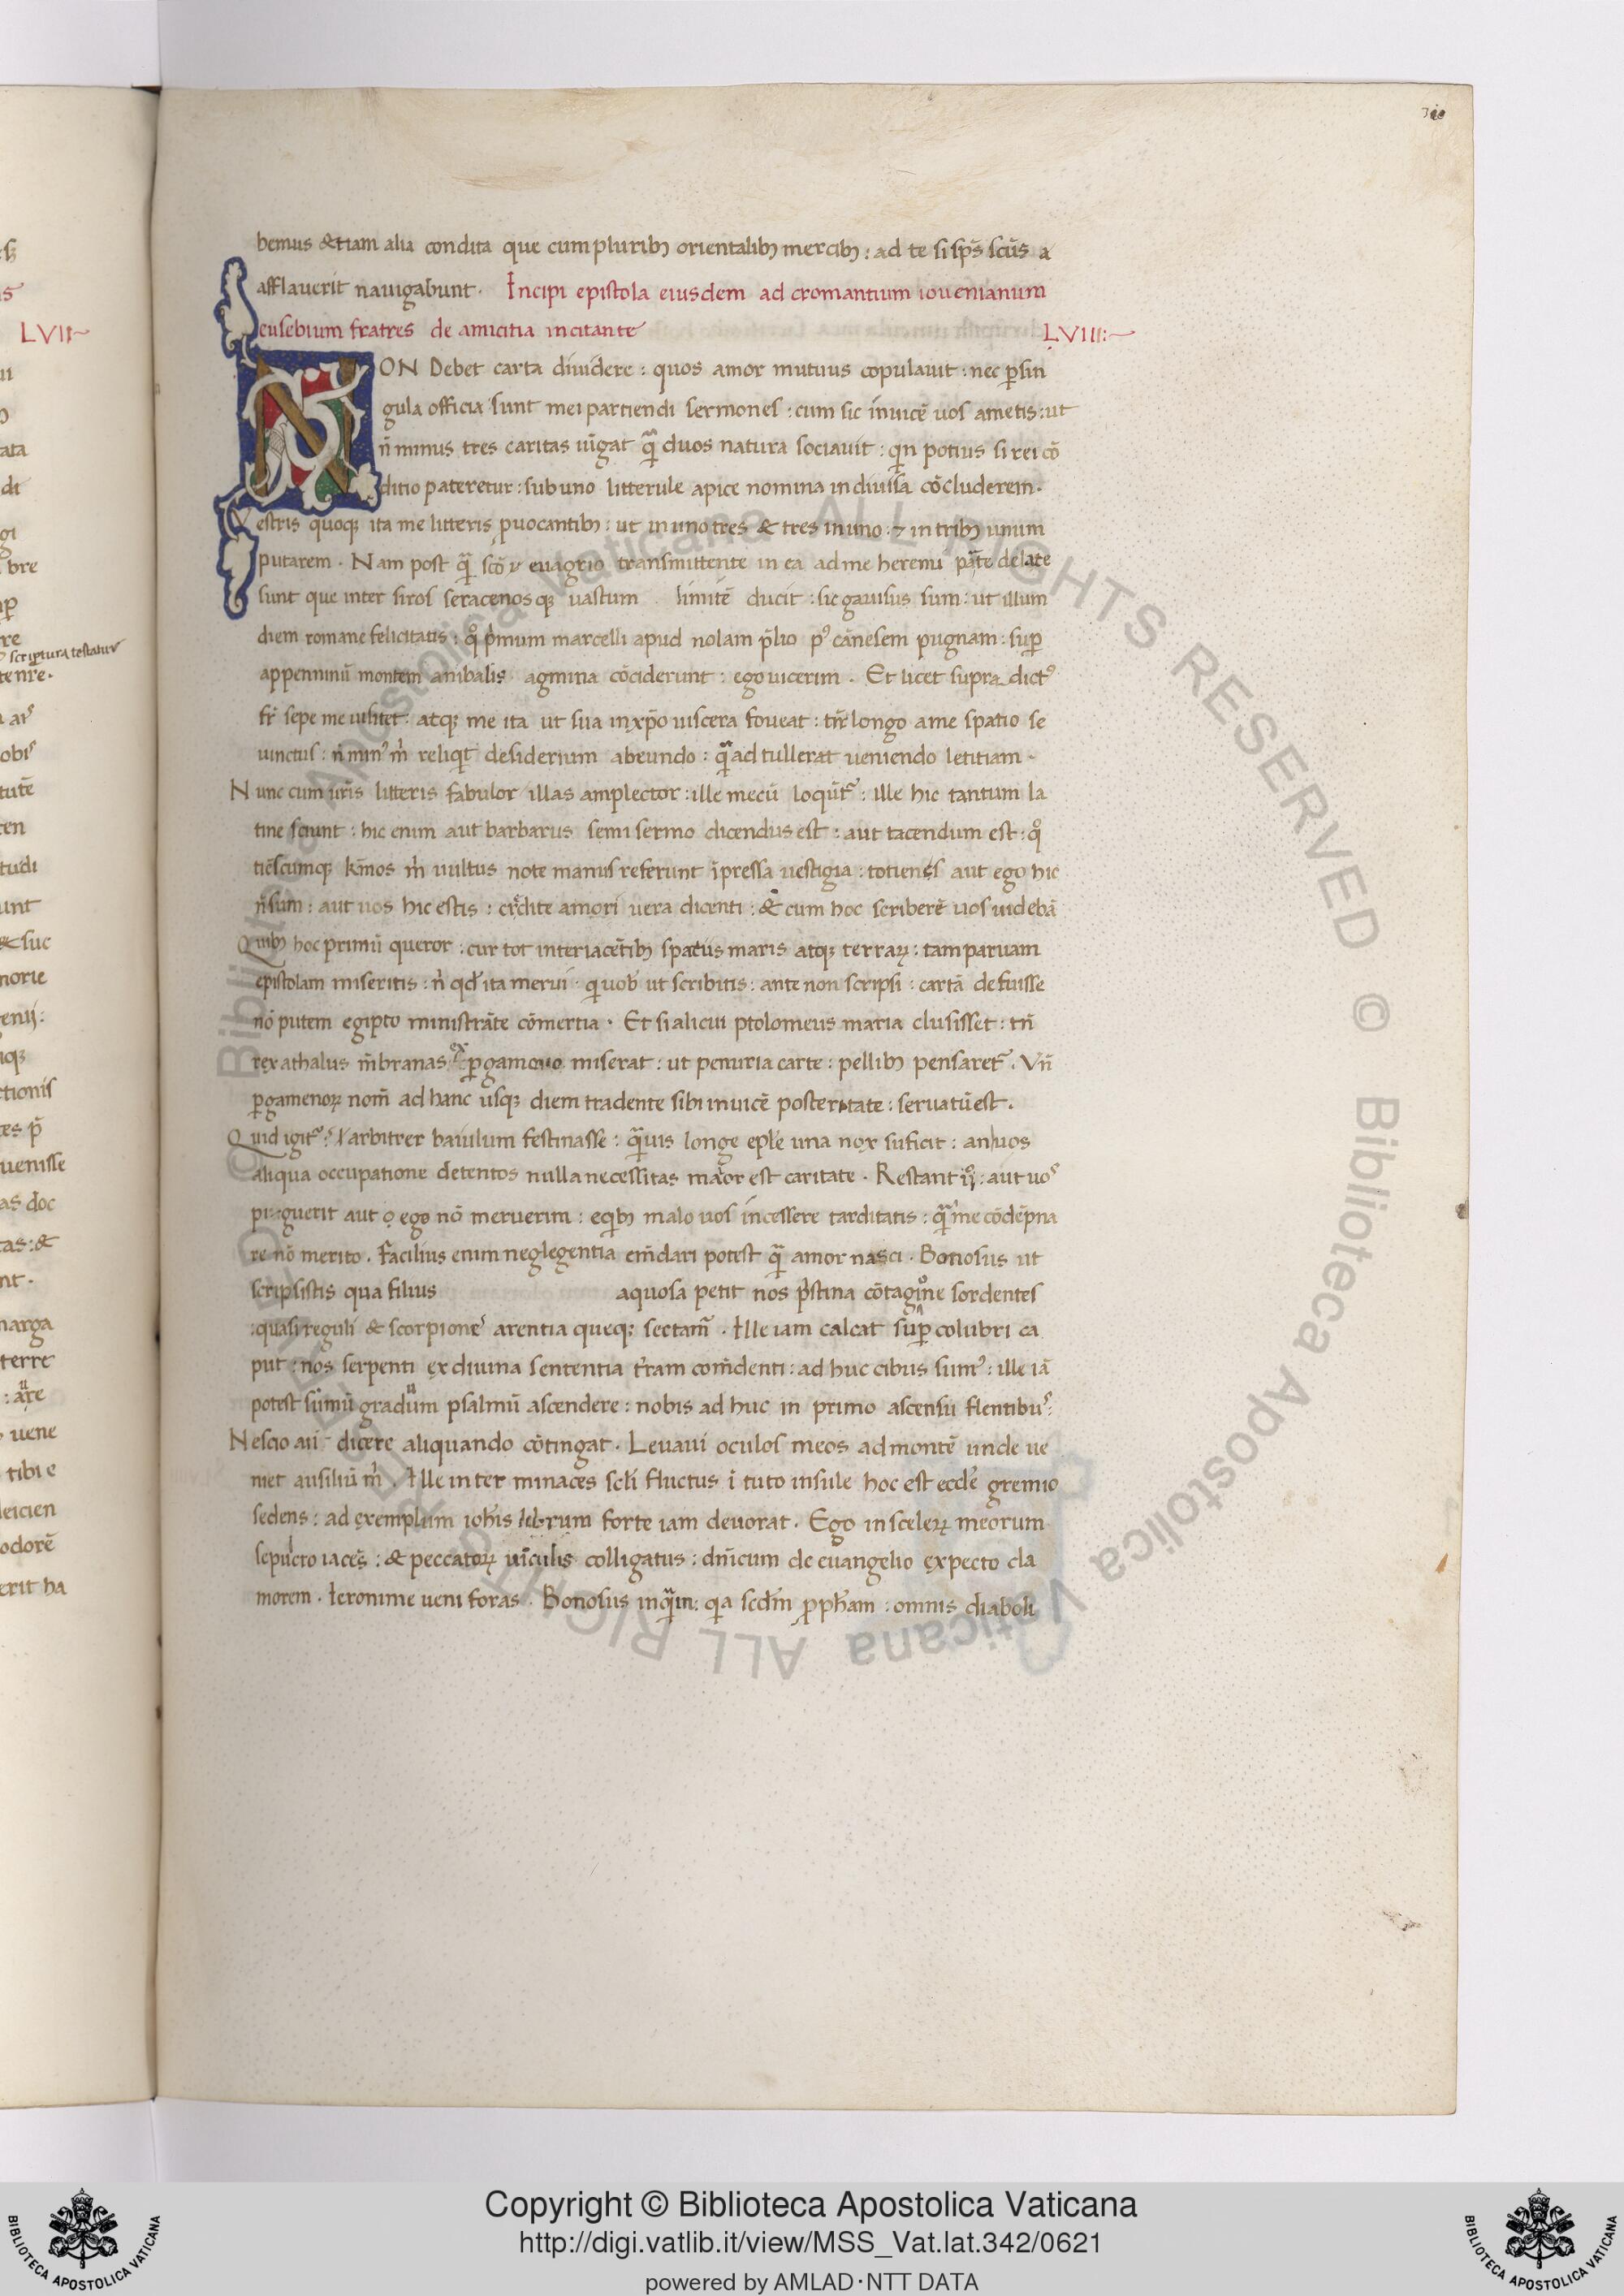 310
bemus & etiam alia condita que cum pluribꝫ orientalibꝫ mercibꝫ : ad te si sps̄ scūs a
afflauerit nauigabunt . Incipi epistola eiusdem ad cromantium iouenianum
eusebium fratres de amicitia incitante LVIII:~
NON Debet carta diuidere : quos amor mutuus copulauit : nec ꝑ sin
gula officia sunt mei partiendi sermones : cum sic inuicē uos ametis : ut
n̄ minus tres caritas iūgat q̄ duos natura sociauit : qin potius si rei cō
ditio pateretur : sub uno litterule apice nomina indiuisa cōcluderem .
Vestris quoqꝫ ita me litteris ꝓuocantibꝫ : ut in uno tres & tres in uno : ⁊ in tribꝫ unum
putarem . Nam post q̄ scō euagrio transmittente in ea ad me heremi ꝑ̄te delate
sunt que inter siros seracenosqꝫ uastum limitē ducit : sic gauisus sum : ut illum
diem romane felicitatis : qͦ pͥmum marcelli apud nolam p̄lio pꝰ cānesem pugnam : suꝑ
appenninū montem anibalis agmina cōciderunt : ego uicerim . Et licet supra dictꝰ
fr̄ sepe me uisitet : atqꝫ me ita ut sua in xp̄o uiscera foueat : tn̄ longo a me spatio se
iunctus : n̄ minꝰ m̄ reliqit desiderium abeundo : q̄ ad tullerat ueniendo letitiam .
Nunc cum ur̄is litteris fabulor illas amplector : ille mecū loqūtᷣ : ille hic tantum la
tine sciunt : hic enim aut barbarus semi sermo dicendus est : aut tacendum est : qͦ
tiēscumqꝫ kr̄mos m̄ uultus note manus referunt īpressa uestigia : totiens aut ego hic
n̄ sum : aut uos hic estis : credite amori uera dicenti : & cum hoc scriberē uos uidebā
Quibꝫ hoc primū queror : cur tot interiacētibꝫ spatiis maris atqꝫ terraꝝ : tam paruam
epistolam miseritis : n̄ qd ita merui quob ut scribitis : ante non scripsi : cartā defuisse
nō putem egipto ministrāte cōmertia . Et si alicui ptolomeus maria clusisset : tn̄
rex athalus m̄branas ex ꝑgameno miserat : ut penuria carte : pellibꝫ pensaretᷣ . Vn̄
ꝑgamenoꝝ nom̄ ad hanc usqꝫ diem tradente sibi inuicē posteritate : seruatū est .
Quid igitᷣ ? arbitrer baiulum festinasse : q̄uis longe ep̄le una nox suficit : an uos
aliqua occupatione detentos nulla necessitas maior est caritate . Restant ijͦ : aut uoˢ
piguerit aut ego nō meruerim : eqibꝫ malo uos incessere tarditatis : q̄ me cōdēpna
re nō merito . Facilius enim neglegentia em̄dari potest q̄ amor nasci . Bonosus ut
scripsistis qua filius aquosa petit nos pͥstina cōtagione sordentes
: quasi reguli & scorpioneˢ arentia queqꝫ sectam̄ . Ille iam calcat suꝑ colubri ca
put : nos serpenti ex diuina sententia tr̄am com̄denti : ad huc cibus sumꝰ : ille iā
potest sūmū gradum psalmū ascendere : nobis ad huc in primo ascensu flentibuˢ :
Nescio an dicere aliquando cōtingat . Leuaui oculos meos ad montē unde ue
niet ausiliū m̄ . Ille inter minaces scl̄i fluctus ī tuto insule hoc est eccl̄e gremio
sedens : ad exemplum ioh̄is librum forte iam deuorat . Ego in sceleꝝ meorum
sepulcro iaces : & peccatoꝝ uīculis colligatus : dn̄icum de euangelio expecto cla
morem . Ieronime ueni foras . Bonosus inq̄m : qia scdm̄ ꝓph̄am : omnis diaboli
LVII~
scriptura testatur
Copyright © Biblioteca Apostolica Vaticana
http://digi.vatlib.it/view/MSS_Vat.lat.342/0621
powered by AMLAD·NTT DATA
BIBLIOTECA APOSTOLICA VATICANA
BIBLIOTECA APOSTOLICA VATICANA
© Biblioteca Apostolica Vaticana ALL RIGHTS RESERVED © Biblioteca Apostolica Vaticana ALL RIGHTS RESERVED